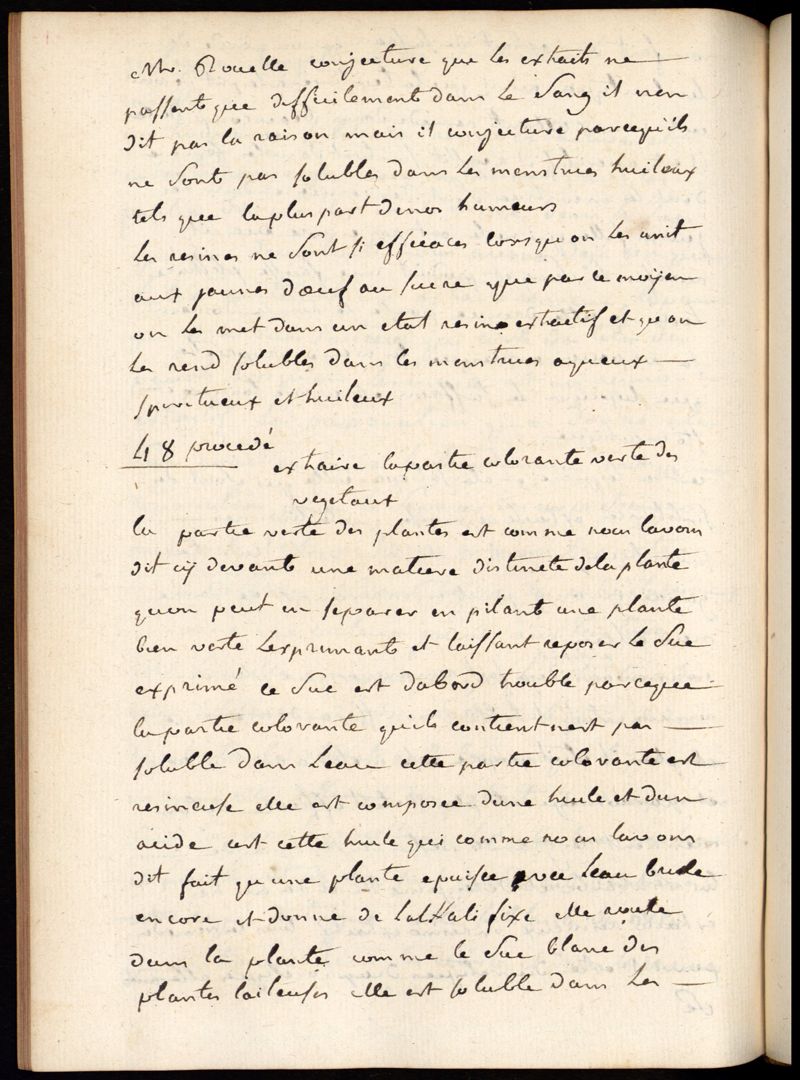 Mr. Rouelle conjecture que les extraits ne
passent que difficilement dans le Sang il nen
dit pas la raison mais il conjecture parcequils
ne Sont pas solubles dans les menstrues huileux
tels que laplus part denos humeurs
les resines ne Sont si efficaces lorsquon les unit
aux jaunes doeuf au sucre que par ce moyen
on les met dans un etat resino extractif et quon
les rend solubles dans les menstrues aqueux
spiritueux et huileux
48 procedé
extraire lapartie colorante verte des
vegetaux
la partie verte des plantes est comme nous lavons
dit cy devant une matiere distincte dela plante
quon peut en separer en pilant une plante
bien verte lexprimant et laissant reposer le Suc
exprimé ce Suc est dabord trouble parceque
lapartie colorante quils contient nest pas
soluble dans leau cette partie colorante est
resineuse elle est composee dune huile et dun
acide cest cette huile qui comme nous lavons
dit fait quune plante epuisée avec leau brule
encore et donne de lalkali fixe elle route
dans la plante comme le Suc blanc des
plantes laiteuses elle est soluble dans les